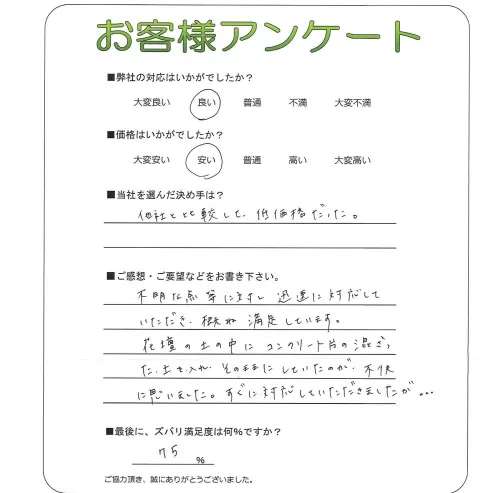 お客様アンケート
■弊社の対応はいかがでしたか？
大変良い 良い 普通 不満 大変不満
■価格はいかがでしたか？
大変安い 安い 普通 高い 大変高い
■当社を選んだ決め手は？
他社と比較して、低価格だった。
■ご感想・ご要望などをお書き下さい。
不明な点等に対し 迅速に対応して
いただき、概ね満足しています。
花壇の土の中に コンクリート片の混ざっ
た土を入れ そのままにしていたのが、不快
に思いました。すぐに対応していただきましたが…
■最後に、ズバリ満足度は何%ですか？
75 %
ご協力頂き、誠にありがとうございました。